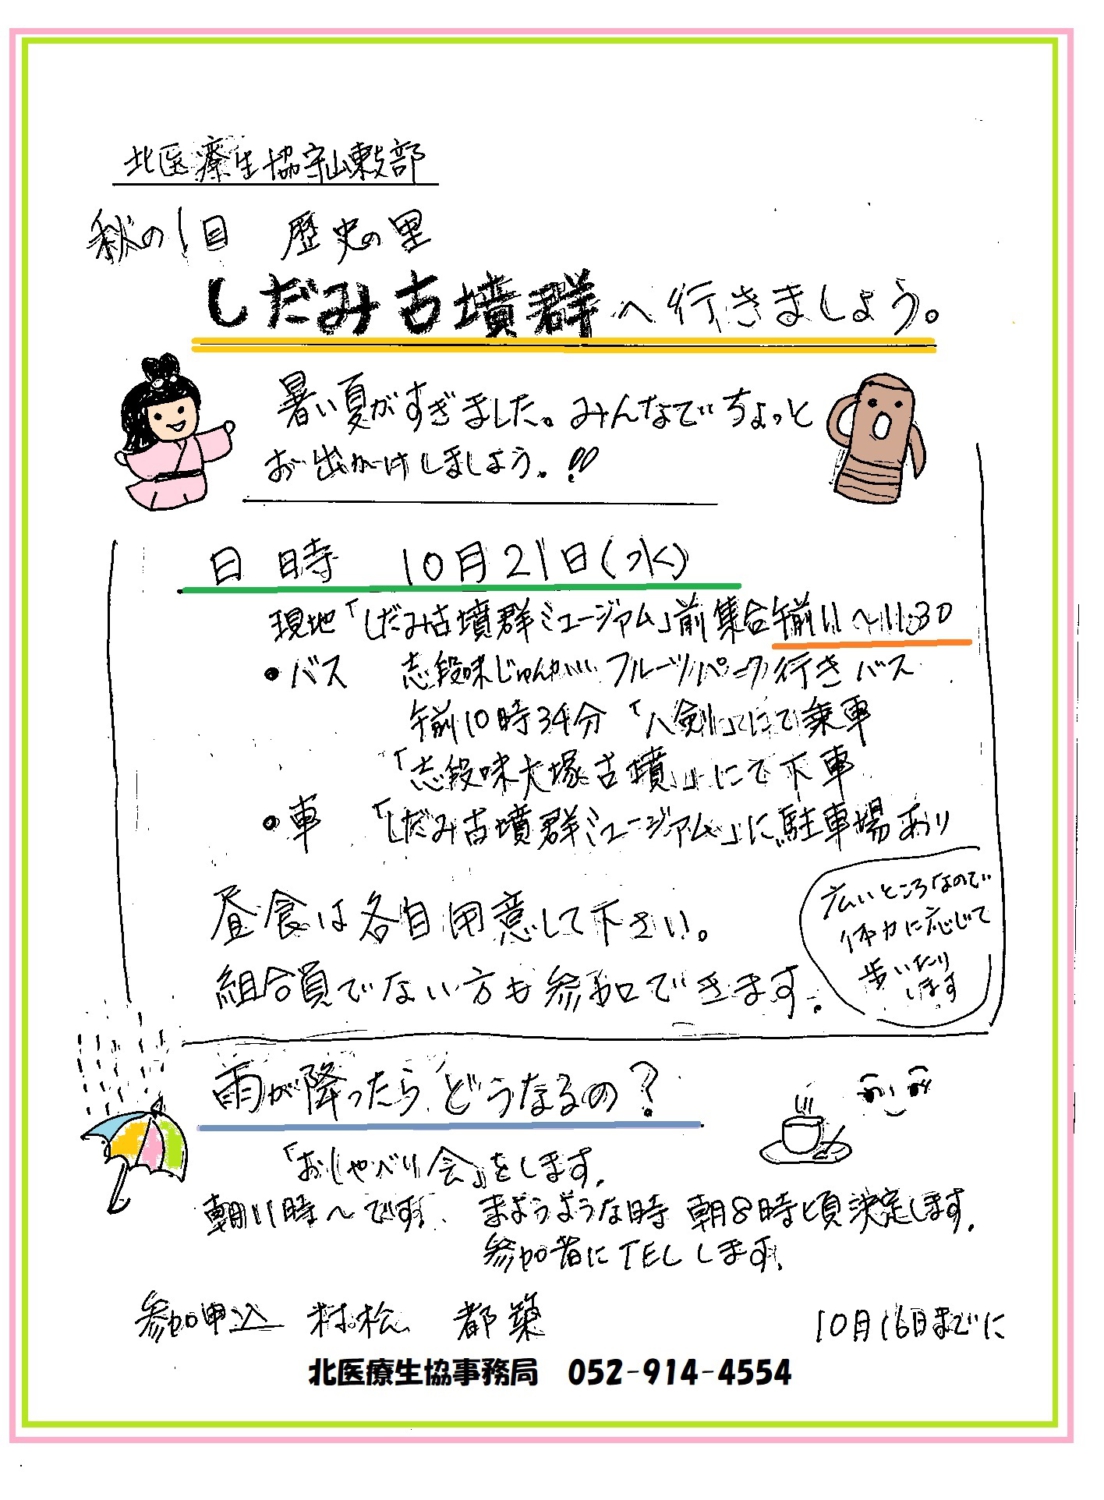 北医療生協守山東支部
秋の1日 歴史の里
しだみ古墳群へ行きましょう。
暑い夏がすぎました。みんなでちょっと
お出かけしましょう。!!
日時 10月21日(水)
現地「しだみ古墳群ミュージアム」前集合午前11~11:30
・バス 志段味じゅんかい フルーツパーク行きバス
午前10時34分「八剣」にて乗車
「志段味大塚古墳」にて下車
・車 「しだみ古墳群ミュージアム」に駐車場あり
昼食は各自用意して下さい。
組合員でない方も参加できます。
広いところなので
体力に応じて
歩いたり
します
雨が降ったらどうなるの?
「おしゃべり会」をします。
朝11時~です。 まようような時 朝8時頃決定します。
参加者にTELします。
参加申込 村松 都築 10月16日までに
北医療生協事務局 052-914-4554